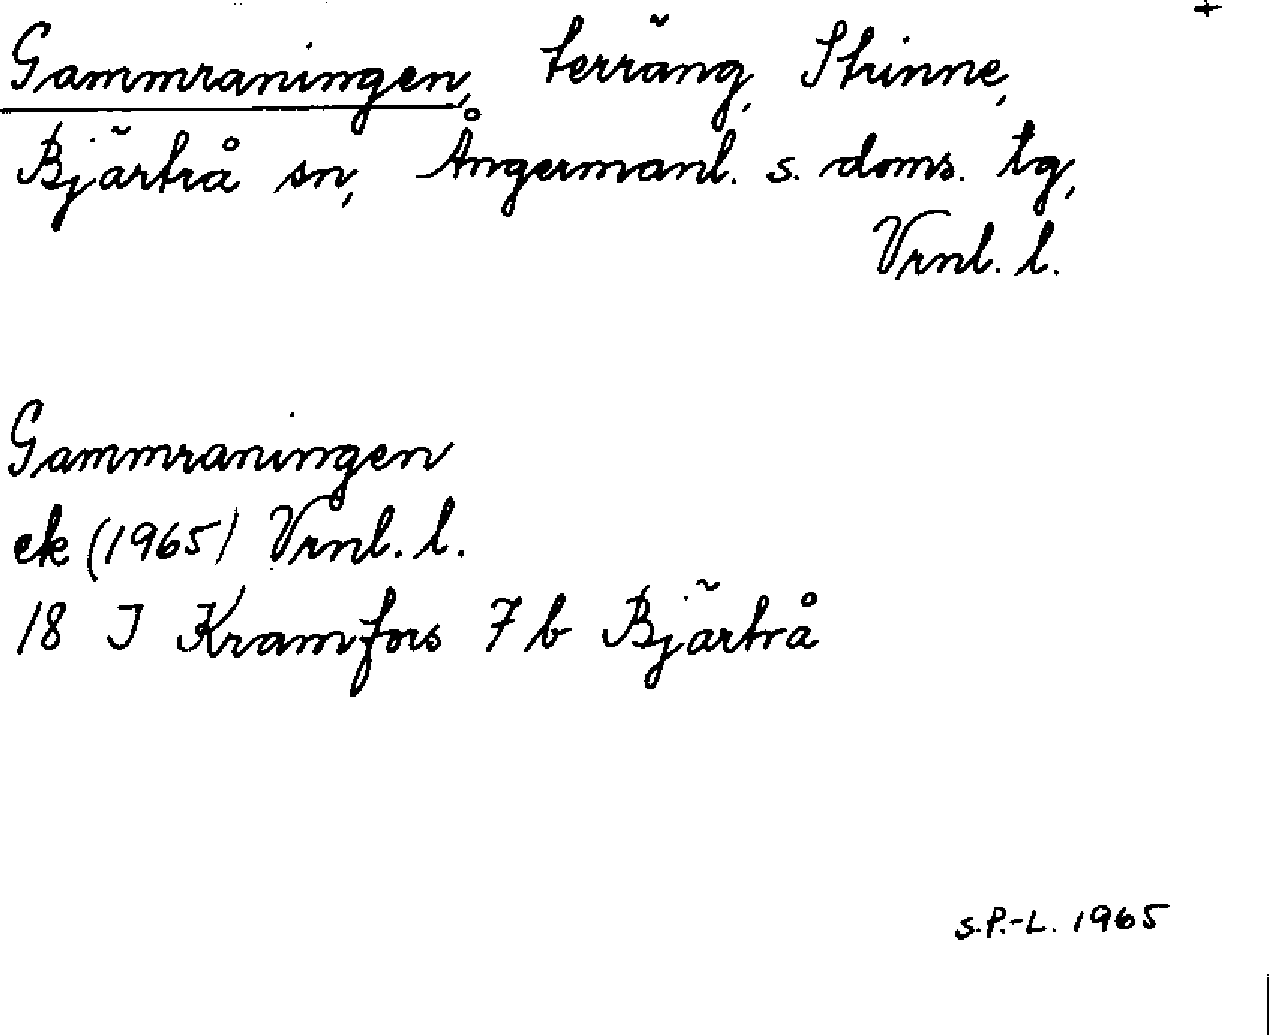 +
Gammraningen, terräng, Strinne,
Bjärtrå sn, Ångermanl. s. doms. tg,
Vrnl. l.
Gammraningen
ek (1965) Vrnl. l.
18 J Kramfors 7 b Bjärtrå
S.P.-L. 1965